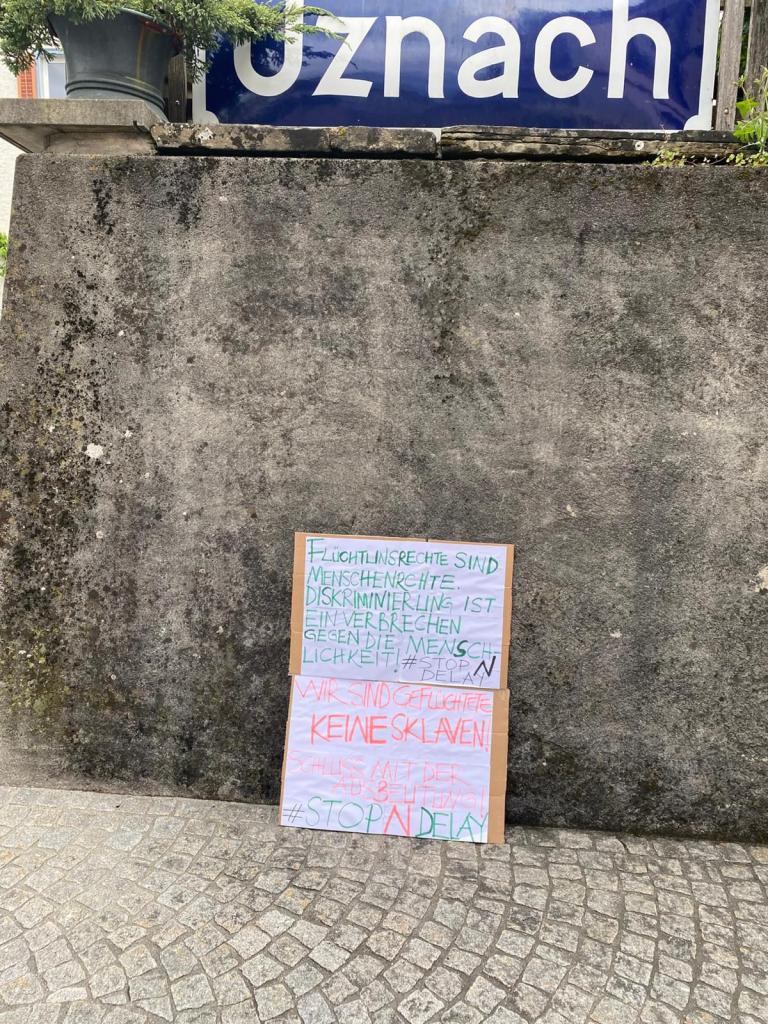 Uznach
FLÜCHTLINSRECHTE SIND
MENSCHENRCHTE.
DISKRIMINIERLING IST
EIN VERBRECHEN
GEGEN DIE MENSCH-
LICHKEIT! #STOP N
DELAY
WIR SIND GEFLÜCHTETE
KEINE SKLAVEN!
SCHLUSS MIT DER
AUSBEUTUNG!
#STOP N DELAY